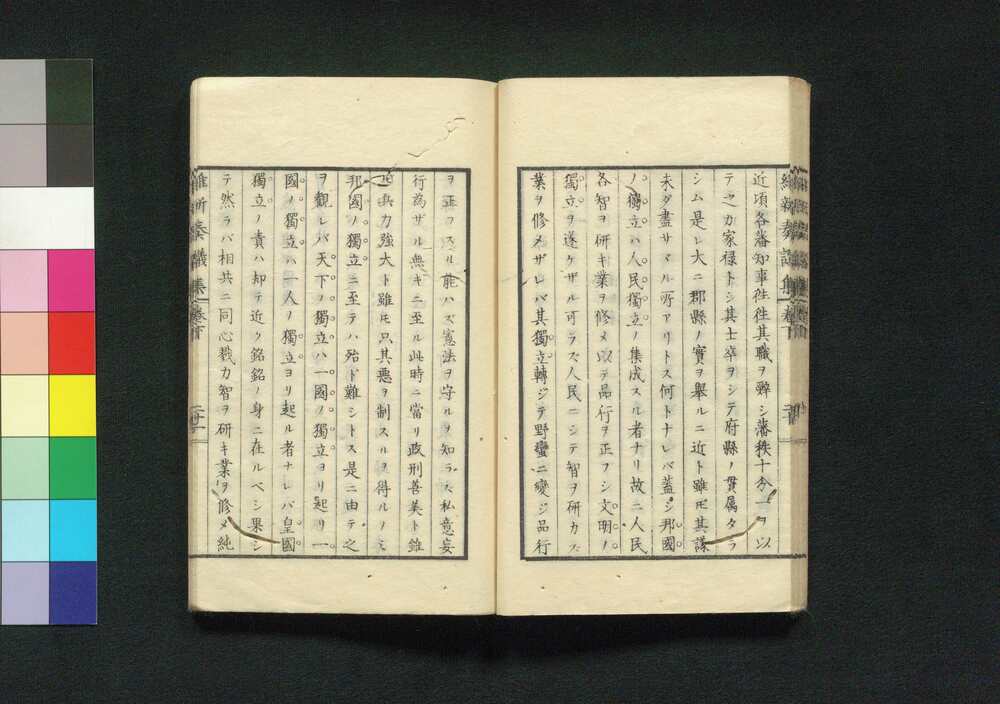 近頃各藩知事徃徃其職ヲ辭シ藩秩十分一ヲ以
テ之カ家禄トシ其士卒ヲシテ府縣ノ貫属タラ
シム是レ大ニ郡縣ノ實ヲ舉ルニ近ト雖𪜈其謙
未ダ盡サヾル所アリトス何トナレバ蓋シ邦國
ノ獨立ハ人民獨立ノ集成スル者ナリ故ニ人民
各智ヲ研キ業ヲ修メ以テ品行ヲ正フシ文明ノ
獨立ヲ遂ケザル可ラズ人民ニシテ智ヲ研カズ
業ヲ修メザレバ其獨立轉ジテ野蠻ニ變ジ品行
ヲ正フスル能ハズ憲法ヲ守ルヲ知ラズ私意妄
行為ザル無キニ至ル此時ニ當リ政刑善美ト雖
𪜈兵力強大ト雖𪜈只其惡ヲ制スルヲ得ルノミ
邦國ノ獨立ニ至テハ殆ド難シトス是ニ由テ之
ヲ觀レバ天下ノ獨立ハ一國ノ獨立ヨリ起リ一
國ノ獨立ハ一人ノ獨立ヨリ起ル者ナレバ皇國
獨立ノ責ハ却テ近ク銘銘ノ身ニ在ルベシ果シ
テ然ラバ相共ニ同心戮力智ヲ研キ業ヲ修メ純
維新奏議集 卷下